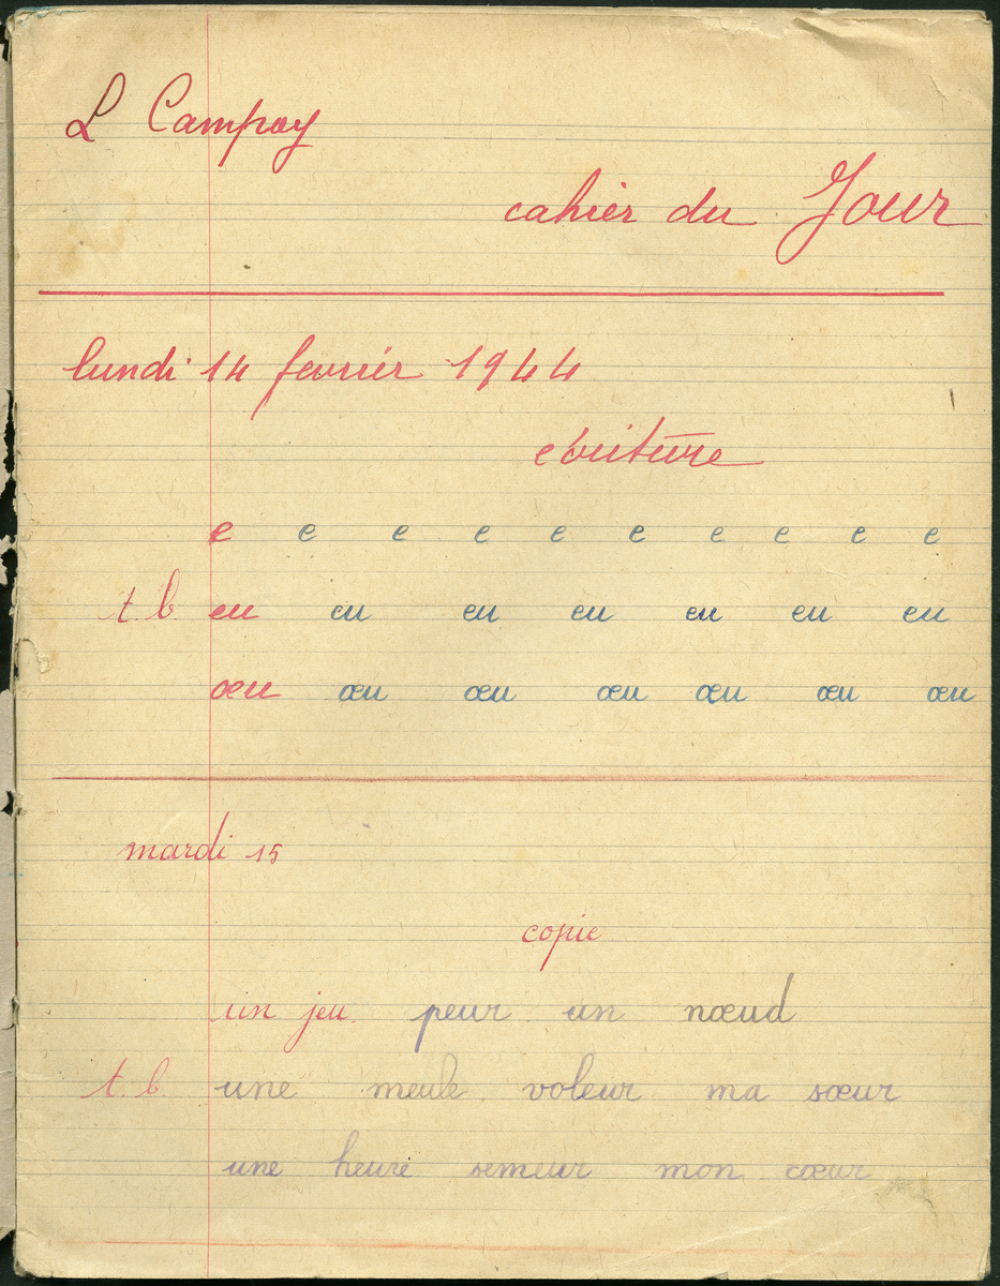 L Campoy
cahier du Jour
lundi 14 fevrier 1944
ecriture
e e e e e e e e e e
t. b. eu eu eu eu eu eu eu
œu œu œu œu œu œu œu
mardi 15
copie
un jeu peur un nœud
t. b. une meule voleur ma sœur
une heure semeur mon cœur